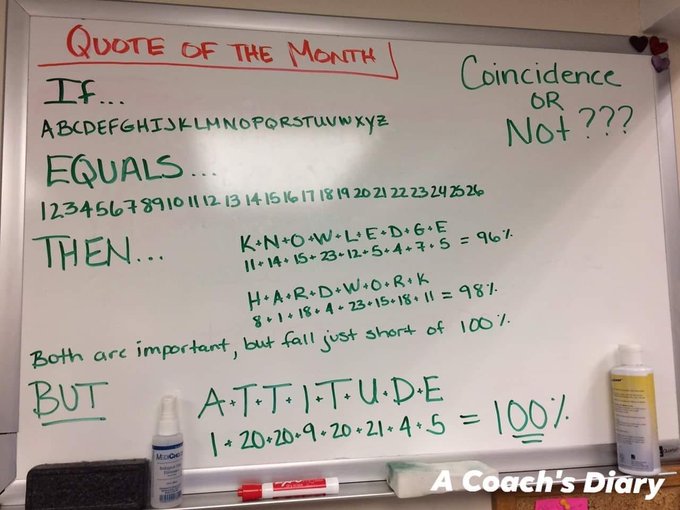 QUOTE OF THE MONTH
Coincidence
OR
Not ???
If...
ABCDEFGHIJKLMNOPQRSTUVWXYZ
EQUALS...
1 2 3 4 5 6 7 8 9 10 11 12 13 14 15 16 17 18 19 20 21 22 23 24 25 26
THEN...
K+N+O+W+L+E+D+G+E
11+14+15+23+12+5+4+7+5 = 96%
H+A+R+D+W+O+R+K
8+1+18+4+23+15+18+11 = 98%
Both are important, but fall just short of 100%.
BUT
A+T+T+I+T+U+D+E
1+20+20+9+20+21+4+5 = 100%
A Coach's Diary